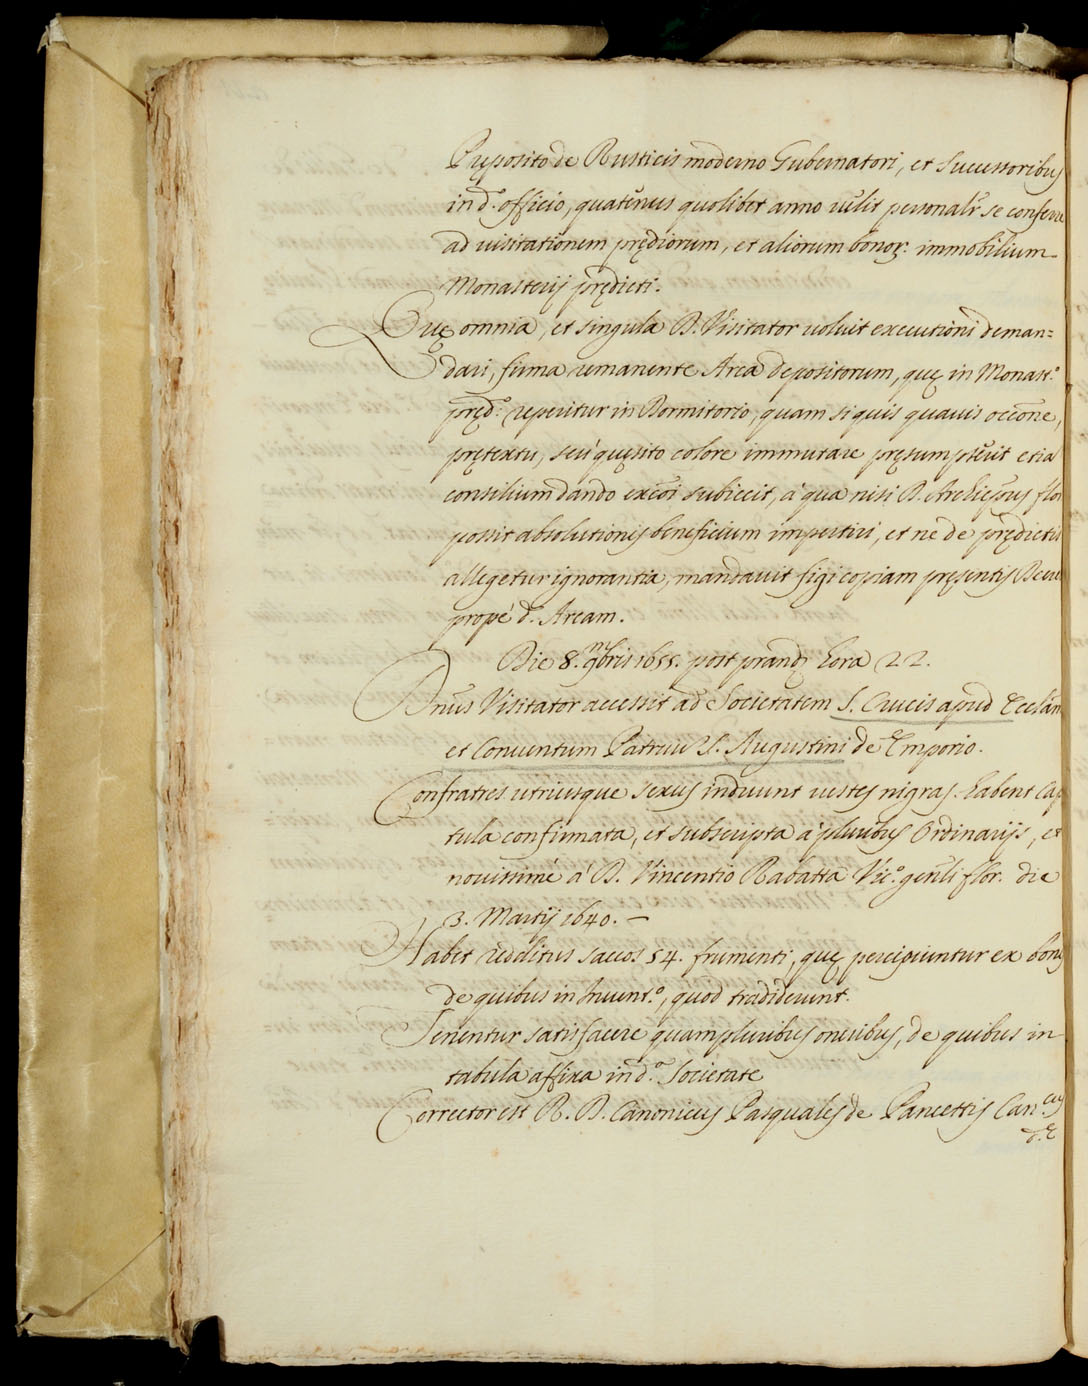 Pręposito de Rusticis moderno Gubernatori, et Successoribus
in d.º officio, quatenus quolibet anno velit personalr se conferre
ad visitationem prędiorum, et aliorum bonoꝝ: immobilium
Monasterij prędicti.
Quę omnia, et singula D. Visitator voluit executioni deman=
dari, firma remanente Arca depositorum, quę in Monast.º
pręd.º reperitur in Dormitorio, quam si quis quavis occone,
prętextu, seù quęsito colore immutare pręsumpserit etia
consilium dando excoi subiecit, à qua nisi D. Archieps flor
possit absolutionis beneficium impertiri, et ne de prędictis
allegetur ignorantia, mandavit figi copiam pręsentis Decre
propè d. Arcam.
Die 8. 9mbris 1655. post prand. hora 22.
Dnus Visitator accessit ad Societatem S. Crucis apud Ecclam
et Conventum Patrum S. Augustini de Emporio.
Confratres utriusque sexus induunt vestes nigras. habent Cap
tula confirmata, et subscripta à pluribus Ordinarijs, et
novissimè à D. Vincentio Rabatta Vic.º genli flor. die
3. Martij 1640. —
Habet redditus saccos 54. frumenti, quę percipiuntur ex bonis
de quibus in Invent.º, quod tradiderunt.
Tenentur satisfacere quampluribus oneribus, de quibus in
tabula affixa in d.ª Societate
Corrector est R. D. Canonicus Pasquales de Pancettis Can.cus